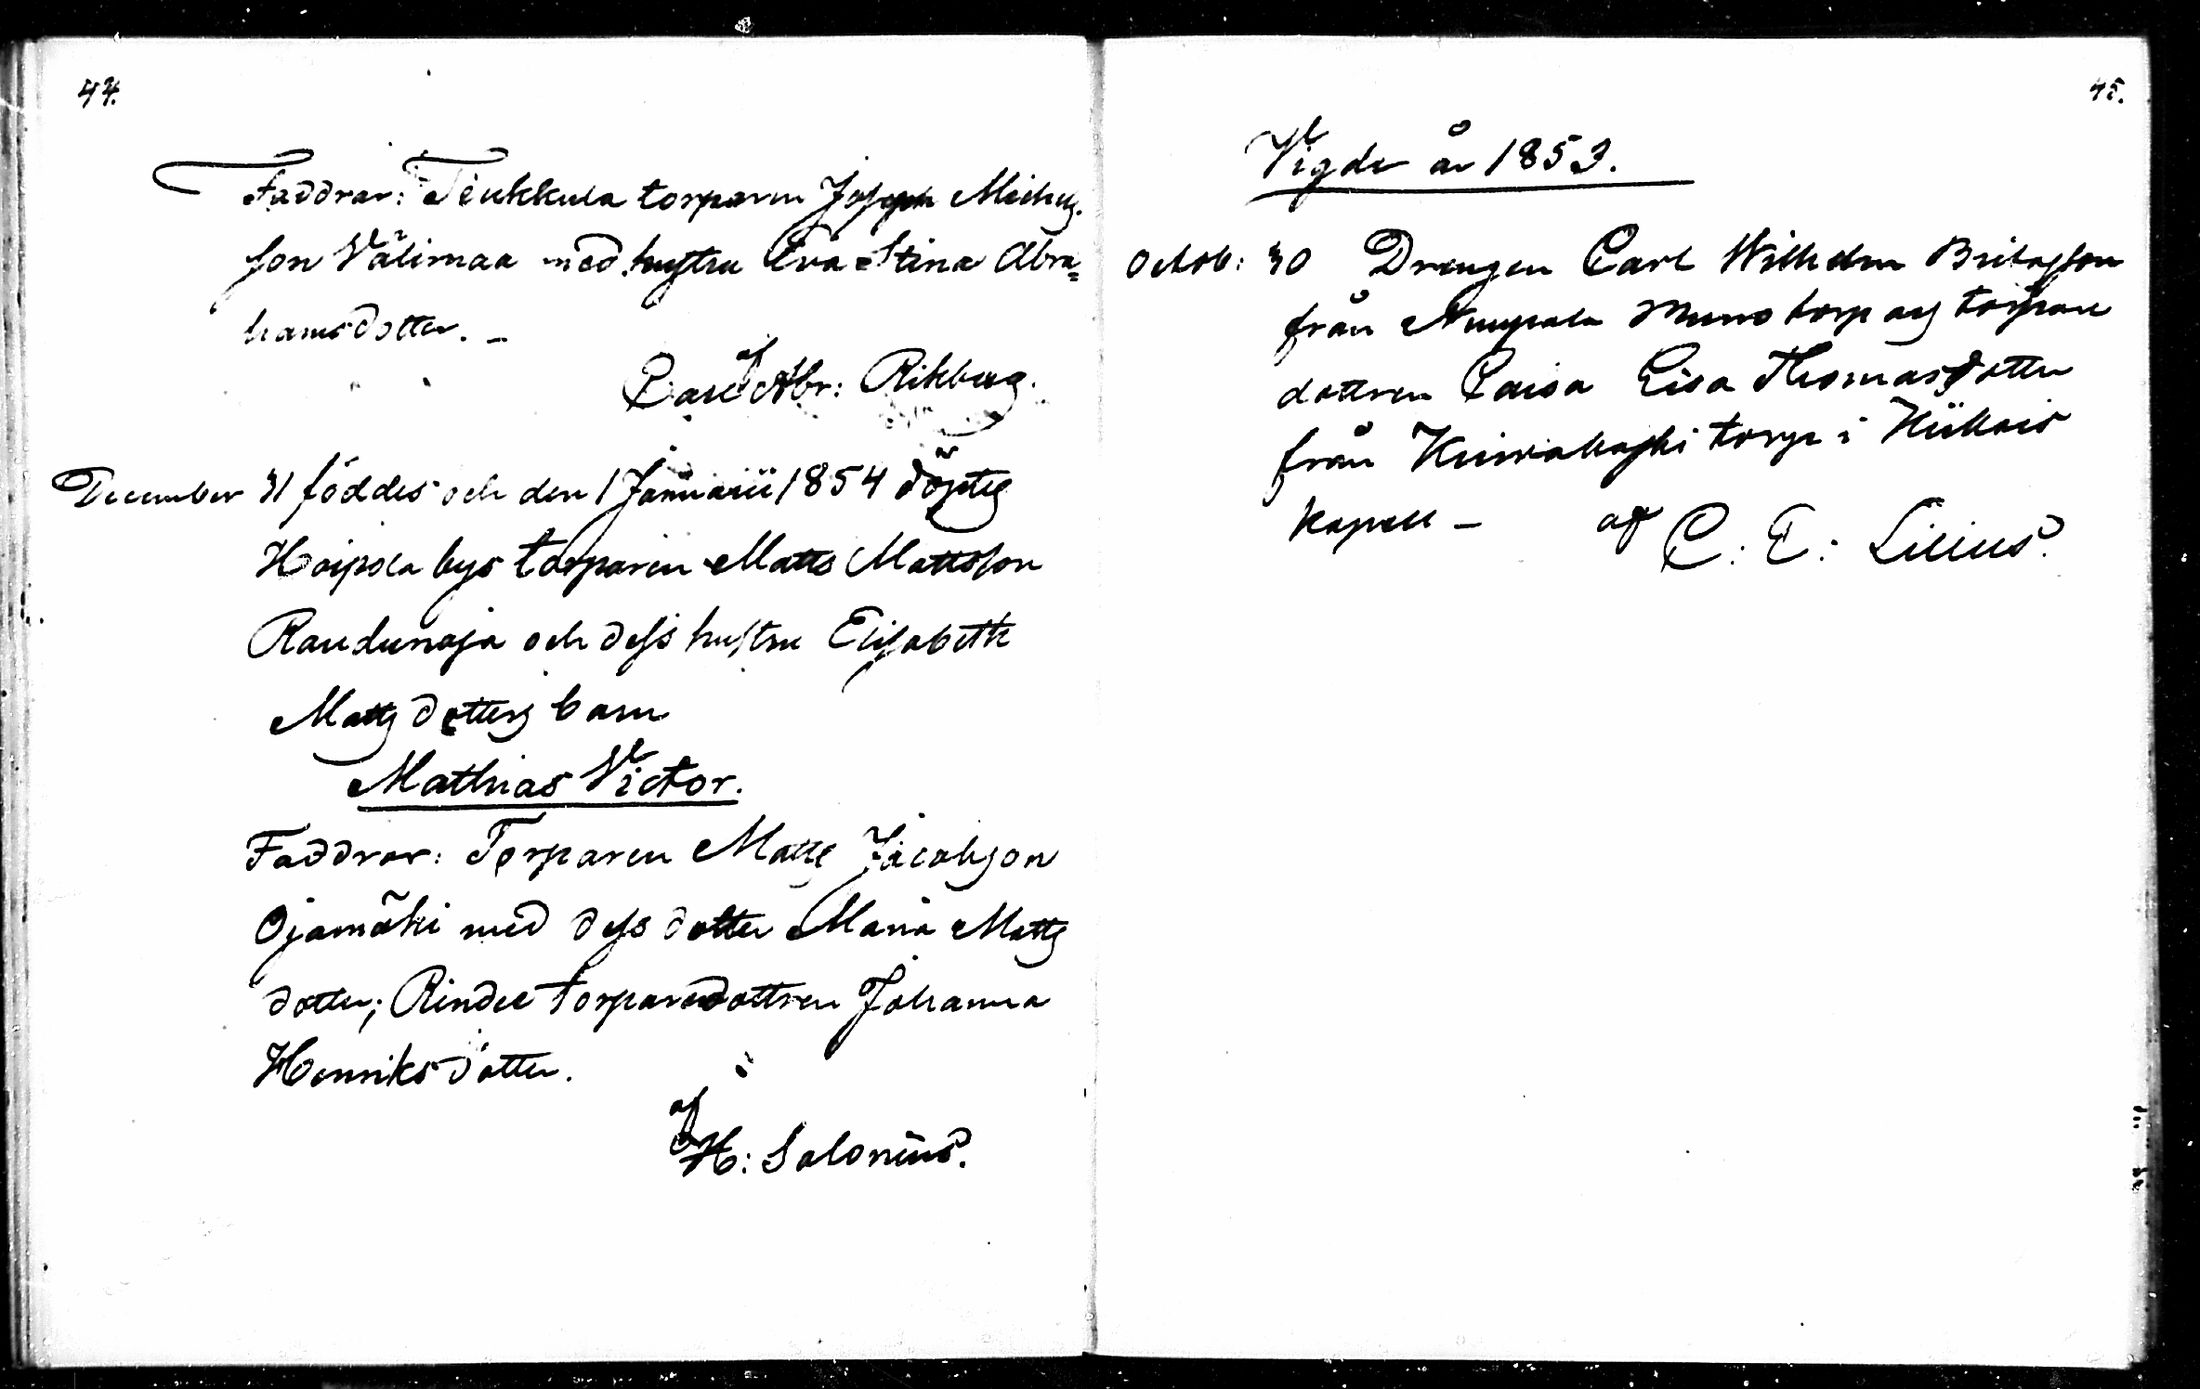 44.
Faddrar: Teukkula torparen Joseph Michels
son Välimaa med hustru Eva Stina Abra=
hamsdotter. _
af
Carl Abr: Rikberg.
December 31 föddes och den 1 Januarii 1854 döptes
Haipola bys torparen Matts Mattsson
Raudunoja och dess hustru Elisabeth
Matts dotters barn
Mathias Victor.
Faddrar: Torparen Matts Jacobsson
Ojamäki med dess dotter Maria Matts
dotter; Rindee torparedottren Johanna
Henriksdotter.
af
H: Salonius.
45.
Vigde år 1853.
Octob: 30 Drengen Carl Wilhelm Britasson
från torp och torpare
dottren Caisa Lisa Thomasdotter
från torp i Hiikois
kapell _ af C: E: Lilius.